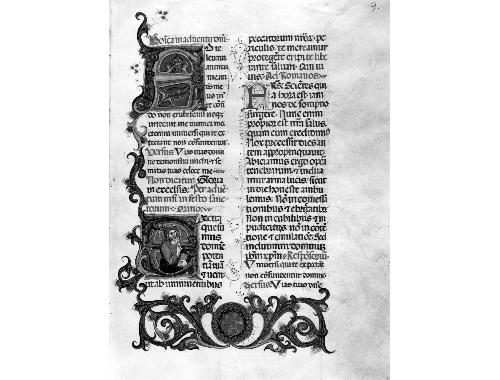 9.
Dñica in adventu dñi.
D te
levavi
animam
meam
deus me
us in
te confi
do non erubescam neqȝ
irrideant me inimici mei
etenim universi qui te ex
pectant non confundentur.
Versus Vias tuas domi
ne demonstra michi et se
mitas tuas edoce me.
Non dicitur Gloria
in excelsis per adven
tum nisi in festo sanc
torum. Oratio.
Excita
quesu
mus
domine
poten
tiam tu
am et veni
ut ab iminentibus
peccatorum nrõrȝ pe
riculis te mereamur
protegente eripi te libe
rante salvari. Qui vi
vis. Ad Romanos.
Fres Scientes qui
a hora est iam
nos de sompno
surgere. Nunc enim
propior est nrã salus
quam cum credidimus
Nox precessit dies au
tem appropinquavit.
Abiciamus ergo opera
tenebrarum et indua
mur arma lucis. sicut
in die honeste ambu
lemus. Non in comessa
tionibus et ebrietatibus.
Non in cubilibus et im
pudicitiis non in conten
tione et emulatione. Sed
induimini dominum
yhm xpm. Responsoriũ
Universi qui te expectãt
non confundentur domine
Versus Vias tuas dñe.